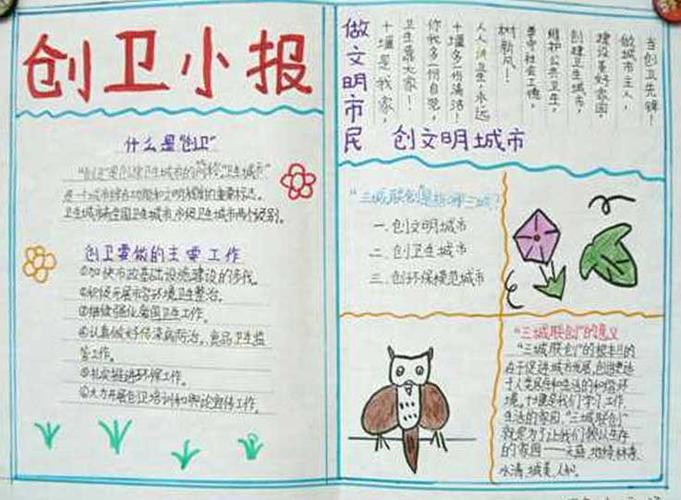 创卫小报
什么是"创卫"
"创卫"是创建卫生城市的简称,"卫生城市"
是一个城市综合功能和文明程度的重要标志。
卫生城市有全国卫生城市、省级卫生城市两个级别。
创卫要做的主要工作
①加快市政基础设施建设的步伐。
②积极开展市容环境卫生整治。
③继续强化爱国卫生工作。
④认真做好传染病防治、食品卫生监
管工作。
⑤扎实推进环保工作。
⑥大力开展创卫培训和舆论宣传工作。
做文明市民
创文明城市
当创卫先锋!
做城市主人,
建设美好家园,
创建卫生城市,
维护公共卫生,
遵守社会公德,
树新风!
人人讲卫生,永远
十堰多一份清洁!
你我多一份自觉,
卫生靠大家!
十堰是我家,
"三城联创"是指哪三城?
一.创文明城市
二.创卫生城市
三.创环保模范城市
"三城联创"的意义
"三城联创"的根本目的
在于促进城市发展,创造更适
于人类居住和生活的和谐环
境。十堰是我们学习、工作、
生活的家园,"三城联创"
就是为了让我们赖以生存
的家园——天蓝、地绿、林茂、
水清、城美、人和。